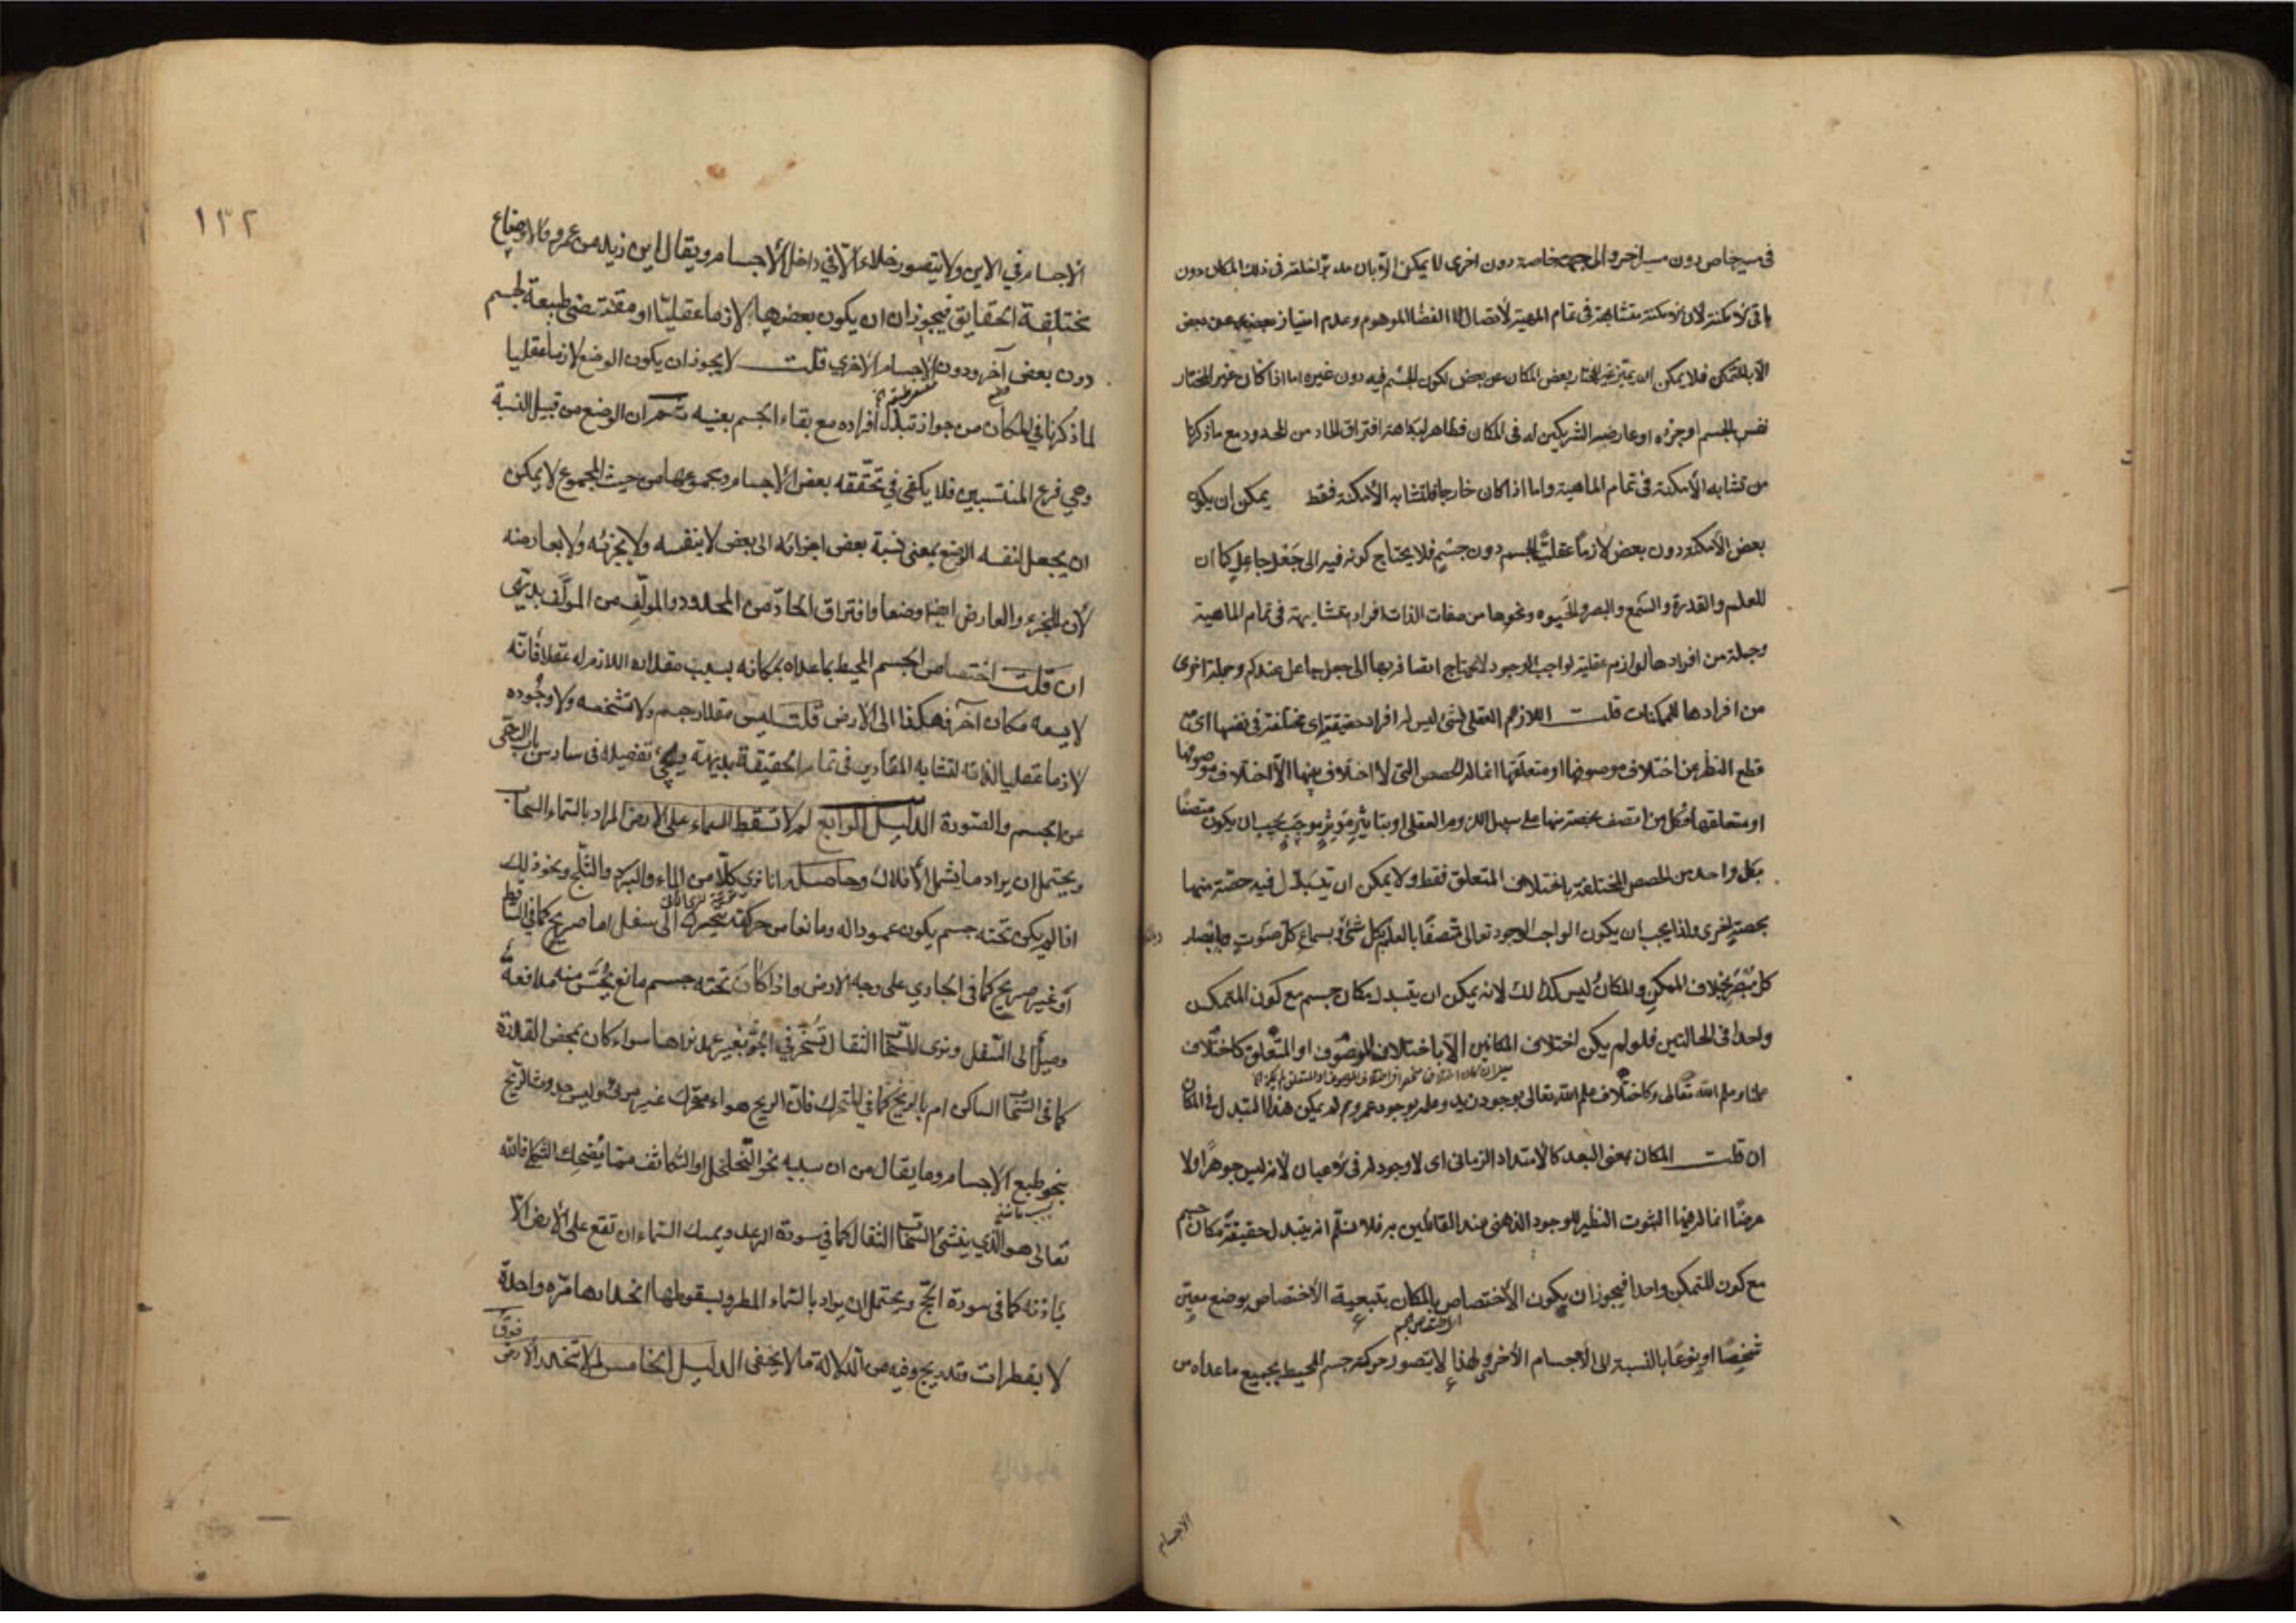 في مسير خاص دون مسير اخر والى جهة خاصة دون اخرى لا يمكن الا بان في ذلك المكان دون
باقي الأمكنة لأن الأمكنة متشابهة في تمام المهية لاتصال الفضا الموهوم وعدم امتياز بعضه عن بعض
الا بالمتمكن فلا يمكن ان يميز غير المختار بعض المكان عن بعض لكون الجسم فيه دون غيره اما اذا كان غير المختار
نفس الجسم او جزءه او عارضه الشريكين له في المكان فظاهر لبداهة افتراق الحاد من المحدود مع ما ذكرنا
من تشابه الأمكنة في تمام الماهية واما اذا كان خارجا فلتشابه الأمكنة فقط يمكن ان يكون
بعض الأمكنة دون بعض لازماً عقليًّا لجسم دون جسم فلا يحتاج كونه فيه الى جَعْل جاعلٍ كما ان
للعلم والقدرة والسَّمع والبصر والحَيوه ونحوها من صفات الذات افراد متشابهة في تمام الماهية
وجملة من افرادها لوازم عقلية لواجب الوجود لا يحتاج اتصافه بها الى جعل جاعل عندكم وجملة اخرى
من افرادها للممكنات قلت اللازم العقلي لشئ ليس له افراد حقيقية اى مختلفة في نفسها اى مع
قطع النظر عن اختلاف موصوفها او متعلقها انما له الحصص التي لا اختلاف فيها الاّ اختلاف موصوفها
او متعلقها وكل من اتصف بحصة منها على سبيل اللزوم العقلي او بتاثير مؤثر موجب يجب ان يكون متصفًا
بكل واحد من الحصص المختلفة باختلاف المتعلق فقط ولا يمكن ان يتبدّل فيه حصّة منها
بحصة اخرى ولذا يجب ان يكون الواجب الوجود تعالى متصفًا بالعلم بكل شئ وبسماع كل صَوت وابصار
كل مُبْصَر بخلاف الممكن والمكان ليس كذلك لانه يمكن ان يتبدل مكان جسم مع كون المتمكن
واحدا في الحالتين فلو لم يكن اختلاف المكانين الاّ باختلاف الموصوف او المتعلق كاختلاف
علمنا وعلم الله تعالى وكاختلاف علم الله تعالى بوجود زيد وعلمه بوجود عمرو لم يمكن هذا التبدل في المكان
ان قلت المكان بمعنى البعد كالامتداد الزماني اى لا وجود له في الاعيان لأنه ليس جوهرًا ولا
عرضًا انما له الثبوت النظير للوجود الذهني عند القائلين به فلا نسلّم انه يتبدل حقيقةً مكان جسم
مع كون المتمكن واحدا فيجوز ان يكون الأختصاص بالمكان بتبعية الأختصاص بوضع معين
شخصًا او نوعًا بالنسبة الى الأجسام الأخر ولهذا لا يتصور حركة جسم المحيط بجميع ما عداه من
الاجسام
١٣٢
الاجسام في الاين ولا يتصور خلاء الاّ في داخل الأجسام ويقال اين زيد من عمرو فالاوضاع
مختلفة الحقايق فيجوز ان يكون بعضها لازما عقليّا او مقتضى طبيعة لجسم
دون بعض آخر ودون الاجسام الأخرى قلت لا يجوز ان يكون الوضع لازما عقليا
لما ذكرنا في المكان من جواز تبدل افراده مع بقاء الجسم بعينه ثم ان الوضع من قبيل النسبة
وهي فرع المنتسبين فلا يكفى في تحققه بعض الأجسام ومجموعها من حيث المجموع لا يمكن
ان يجعل لنفسه الوضع بمعنى نسبة بعض اجزائه الى بعض لا بنفسه ولا بجزئه ولا بعارضه
لأن للجزء والعارض ايضا وضعا وافتراق الحادّ من المحدود والمؤلِّف من المؤلَّف بديهى
ان قلت اختصاص الجسم المحيط بما عداه بمكانه بسبب مقداره اللازم له عقلا فانّه
لا يسعه مكان آخر فهكذا الى الأرض قلت ليس مقدار جسم ولا تشخصه ولا وجُوده
لازما عقليا لذاته لتشابه المقادير في تمام الحقيقة بديهة ويجئ تفصيله في سادس باب النهى
عن الجسم والصورة الدليل الرابع لم لا تسقط السماء على الارض المراد بالسماء السحاب
ويحتمل ان يراد ما يشمل الأفلاك وحاصله انا نرى كلّا من الماء والبرد والثلج ونحو ذلك
اذا لم يكن تحته جسم يكون عمودا له ومانعا من حركته يتحرك الى سفل اما صريح كما في الساقط
او غير صريح كما في الجاري على وجه الارض واذا كان تحته جسم مانع يُحَسّ منه مدافعة
وميلٌ الى السّفل ونرى السّحاب الثقال تُسخّر في الجوّ بغير عمد نراها سواء كان بمحض القدرة
كما في السحاب الساكن ام بالريح كما في المتحرك فان الريح هواء متحرك غير مرئى وليس حدوث الريح
بنحو طبع الأجسام وما يقال من ان سببه نحو التخلخل او التكاثف مما يُضحك الثكلى فانّه
تعالى هو الذي ينشئ السّحاب الثقال كما في سورة الرعد ويمسك السّماء ان تقع على الأرض الاّ
باذنه كما في سورة الحج ويحتمل ان يراد بالسّماء المطر وبسقوطها انحدارها مرّه واحدة
لا بقطرات وتدريج وفيه من الدلالة ما لا يخفى الدليل الخامس لم لا تنحدر الارض فوق